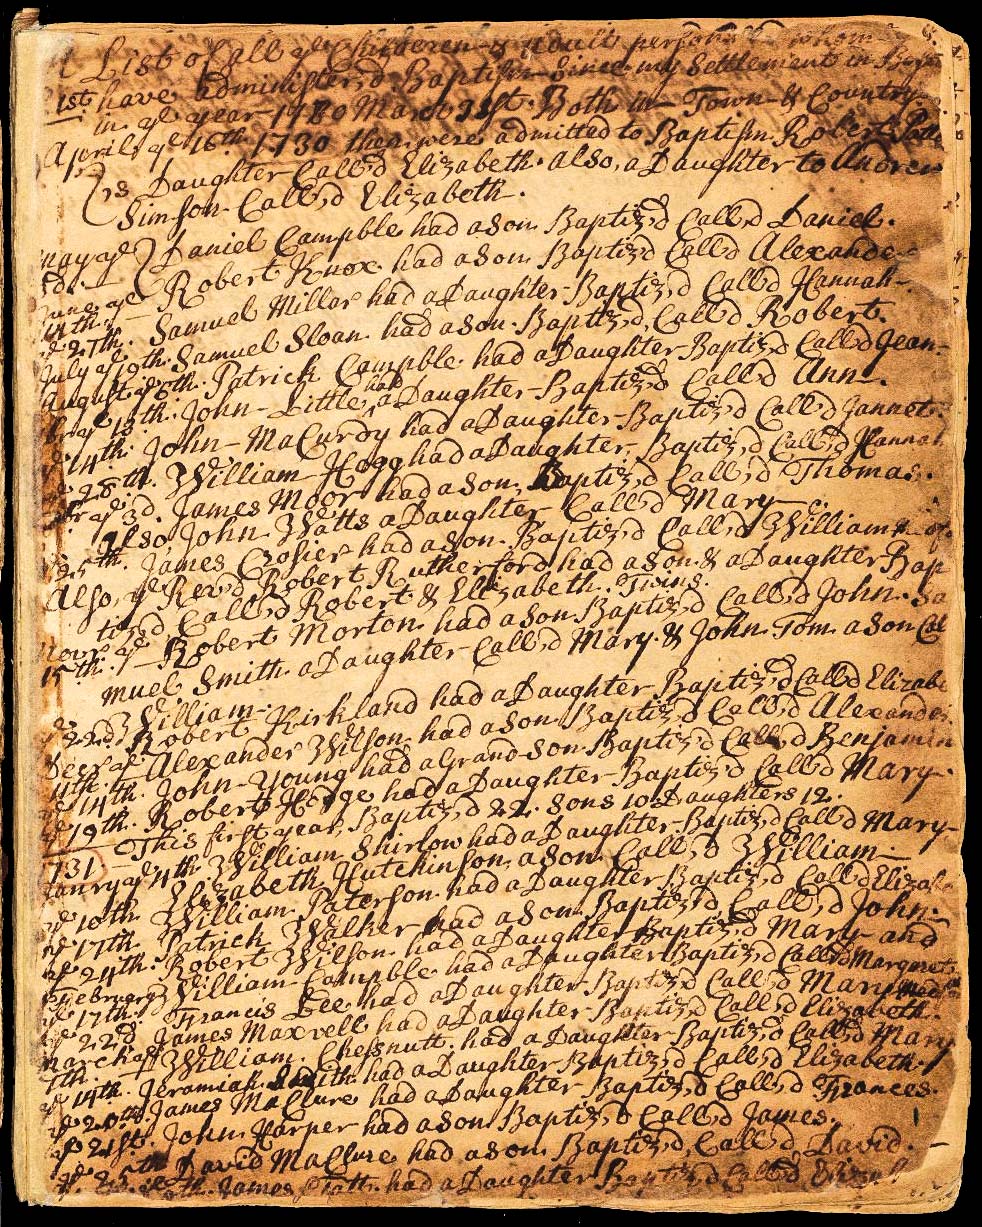 A List of all ye Children & adult persons whom
1st have administer,d Baptism Since my Settlement in
in ye year 1730 March Both in Town & Country.
April ye 16th 1730 then were admitted to Baptism Robert
's Daughter Call,d Elizabeth also, a Daughter to Andrew
Simson Call,d Elizabeth.
may ye Daniel Campble had a son Baptiz,d Call,d Daniel.
3d. Robert Knox had a Son Baptiz,d Call,d Alexander
June ye
14th. Samuel Miller had a Daughter Baptiz,d Call,d Hannah
ye 27th. Samuel Sloan had a Son Baptiz,d, Call,d Robert.
July ye 19th. Patrick Campble had a Daughter Baptiz,d Call,d Jean
August ye John Little, had a Daughter Baptiz,d Call,d Ann.
ye 13th. John MaCurdy had a Daughter Baptiz,d Call,d Jannet.
ye 14th. William Hogg had a Daughter, Baptiz,d Call,d Hannah
ye 28th. James Moor had a Son, Baptiz,d Call,d Thomas.
ye 3d. Also, John Watts a Daughter Call,d Mary
ye 25th. James Crosier had a Son Baptiz,d Call,d William
Also, ye Rev,d Robert Rutherford had a Son & a Daughter Bap
tiz,d Call,d Robert & Elizabeth. Twins.
Novr ye Robert Morton had a Son Baptiz,d Call,d John. Sa
15th.
muel Smith a Daughter Call,d Mary. & John Tom a Son Cal
William.
ye 22d Robert Kirkland had a Daughter Baptiz,d Call,d Elizabe
Decr ye Alexander Wilson had a Son Baptiz,d Call,d Alexander
4th.
ye 14th. John Young had a Grand Son Baptiz,d Call,d Benjamin
ye 19th. Robert Hodge had a Daughter Baptiz,d Call,d Mary.
This first year, Baptiz,d 22. Sons 10 Daughters 12.
1731 William Shirlow had a Daughter Baptiz,d Call,d Mary
Janry ye 4th. Elizabeth Hutchinson a Son Call,d William
ye 10th. William Paterson had a Daughter Baptiz,d Call,d Elizab
ye 17th. Patrick Walker had a Son Baptiz,d Call,d John.
ye 24th. Robert Wilson had a Daughter Baptiz,d Mary and
February William Campble had a Daughter Baptiz,d Call,d Margret
ye 17th. Francis Lee had a Daughter Baptiz,d Call,d Mary
ye 22d. James Maxwell had a Daughter Baptiz,d Call,d Elizabeth.
March ye William Chesnutt had a Daughter Baptiz,d Call,d Mary
7th.
ye 14th. Jeramiah Smith had a Daughter Baptiz,d Call,d Elizabeth.
ye 20th James MaClure had a Daughter Baptiz,d Call,d Frances.
ye 21st. John Harper had a Son Baptiz,d Call,d James.
ye 25th David MaClure had a Son Baptiz,d, Call,d David.
James had a Daughter Baptiz,d Call,d